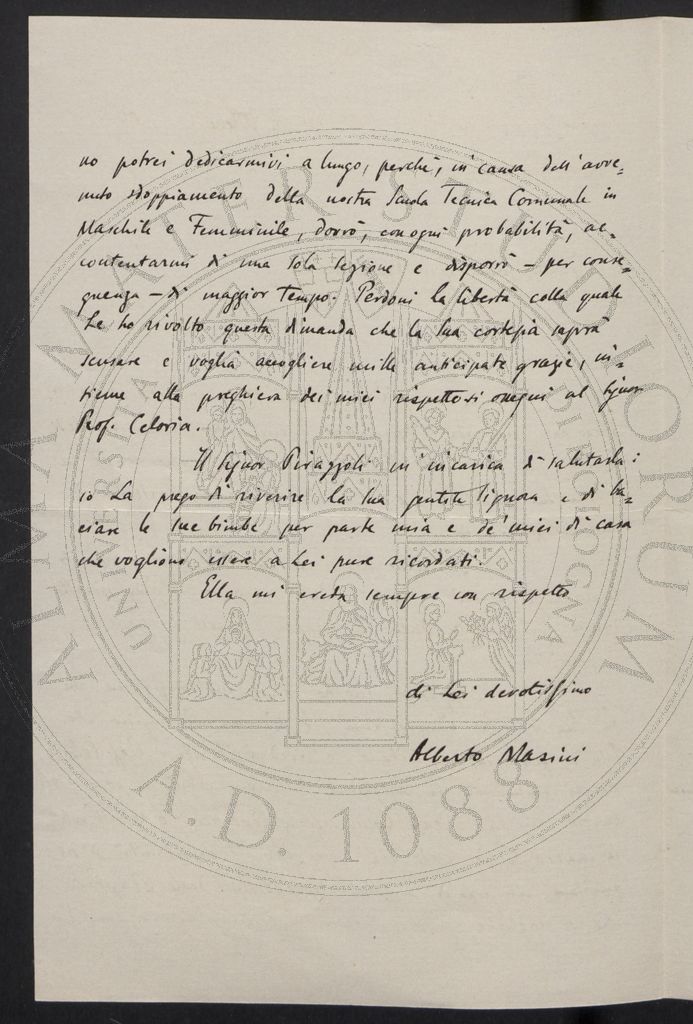 no potrei dedicarmivi a lungo, perchè, in causa dell'avve=
nuto sdoppiamento della nostra Scuola Tecnica Comunale in
Maschile e Femminile, dovrò, con ogni probabilità, ac=
contentarmi di una sola Sezione e disporrò – per conse=
guenza – di maggior tempo. Perdoni la libertà colla quale
Le ho rivolto questa dimanda che la Sua cortesia saprà
scusare e voglia accogliere mille anticipate grazie, in=
sieme alla preghiera dei miei rispettosi ossequi al Signor
Prof. Celoria.
Il Signor Pirazzoli m'incarica di salutarla:
io La prego di riverire la Sua gentile Signora e di ba=
ciare le sue bimbe per parte mia e de' miei di casa
che vogliono essere a Lei pure ricordati.
Ella mi creda sempre con rispetto
di Lei devotissimo
Alberto Masini
ALMA MATER STUDIORUM
UNIVERSITÀ DI BOLOGNA
A.D. 1088